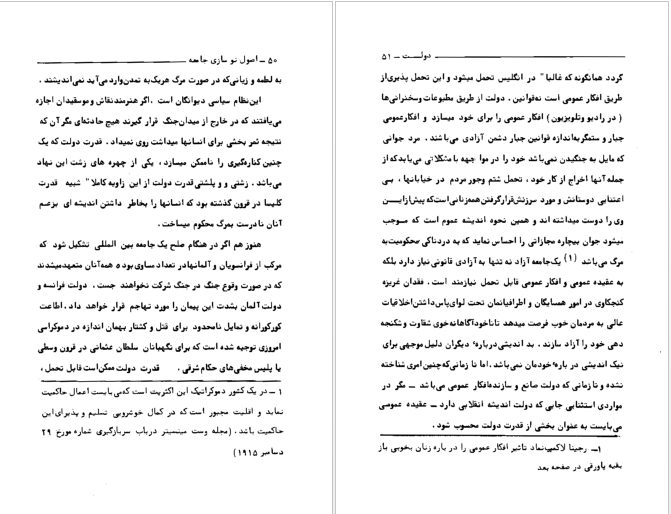 ۵۰ ــ اصول نو سازی جامعه
به لطمه و زیانی‌که در صورت مرگ هریک‌به تمدن‌وارد می‌آید نمی‌اندیشند .
این‌نظام سیاسی دیوانگان است .اگر هنرمندنقاش و موسقیدان اجازه
می‌یافتند که در خارج از میدان‌جنگ قرار گیرند هیچ حادثه‌ای مگر آن که
نتیجه ثمر بخشی برای انسانها میداشت روی نمیداد . قدرت دولت که یک
چنین کناره‌گیری را ناممکن میسازد ، یکی از چهره های زشت این نهاد
می‌باشد . زشتی و و پلشتی قدرت دولت از این زاویه کاملا" شبیه قدرت
کلیسا در قرون گذشته بود که انسانها را بخاطر داشتن اندیشه ای بزعم
آنان نادرست بمرگ محکوم میساخت .
هنوز هم اگر در هنگام صلح یک جامعه بین المللی تشکیل شود که
مرکب از فرانسویان و آلمانها‌در تعداد مساوی بوده همه‌آنان متعهدمیشدند
که در صورت وقوع جنگ در جنگ شرکت نخواهند جست ، دولت فرانسه و
دولت آلمان بشدت این پیمان را مورد تهاجم قرار خواهد داد . اطاعت
کورکورانه و تمایل نامحدود برای قتل و کشتار بهمان اندازه در دموکراسی
امروزی توجیه شده است که برای نگهبانان سلطان عثمانی در قرون وسطی
یا پلیس مخفی‌های حکام شرقی . قدرت دولت ممکن‌است قابل تحمل ،
۱ ــ در یک کشور دموکراتیک این اکثریت است که‌می‌بایست اعمال حاکمیت
نماید و اقلیت مجبور است که در کمال خوشرویی تسلیم و پذیرای این
حاکمیت باشد . (مجله وست مینسیتر درباب سربازگیری شماره مورخ ۲۹
دسامبر ۱۹۱۵)
دولت ــ ۵۱
گردد همانگونه که غالبا" در انگلیس تحمل میشود و این تحمل پذیری‌از
طریق افکار عمومی است نه‌قوانین . دولت از طریق مطبوعات‌و‌سخنرانی‌ها
( در رادیو وتلویزیون ) افکار عمومی را برای خود میسازد و افکارعمومی
جبار و ستمگر‌به‌اندازه قوانین جبار دشمن آزادی می‌باشند . مرد جوانی
که مایل به جنگیدن نمی‌باشد خود را در موا جهه بامشکلاتی می‌یابد‌که‌از
جمله‌آنها اخراج از کار خود ، تحمل شتم وجور مردم در خیابانها ، بی
اعتنایی دوستانش و مورد سرزنش‌قرارگرفتن‌همه‌زنانی‌است‌که پیش‌ازایسن
وی را دوست میداشته اند و همین نحوه اندیشه عموم است که موجب
میشود جوان بیچاره مجازاتی را احساس نماید که به دردناکی محکومیت‌به
مرگ می‌باشد (۱) یک‌جامعه آزاد نه تنها به آزادی قانونی نیاز دارد بلکه
به عقیده عمومی و افکار عمومی قابل تحمل نیازمند است . فقدان غریزه
کنجکاوی در امور همسایگان و اطرافیانمان تحت لوای‌پاس‌داشتن‌اخلاقیات
عالی به مردمان خوب فرصت میدهد تاناخودآگاهانه‌خوی شقاوت و شکنجه
دهی خود را آزاد سازند . بد اندیشی درباره‌ٔ دیگران دلیل موجهی برای
نیک اندیشی در باره‌ٔ خودمان نمی‌باشد . اما تا زمانی‌که‌چنین امری شناخته
نشده و تا زمانی که دولت صانع و سازنده‌افکار عمومی می‌باشد ــ مگر در
مواردی استثنایی جایی که دولت اندیشه انقلابی دارد ــ عقیده عمومی
می‌بایست به عنوان بخشی از قدرت دولت محسوب شود .
۱ــ رجینا لاکمپ‌نماد تاثیر افکار عمومی را در باره زنان بخوبی باز
بقیه پاورقی در صفحه بعد